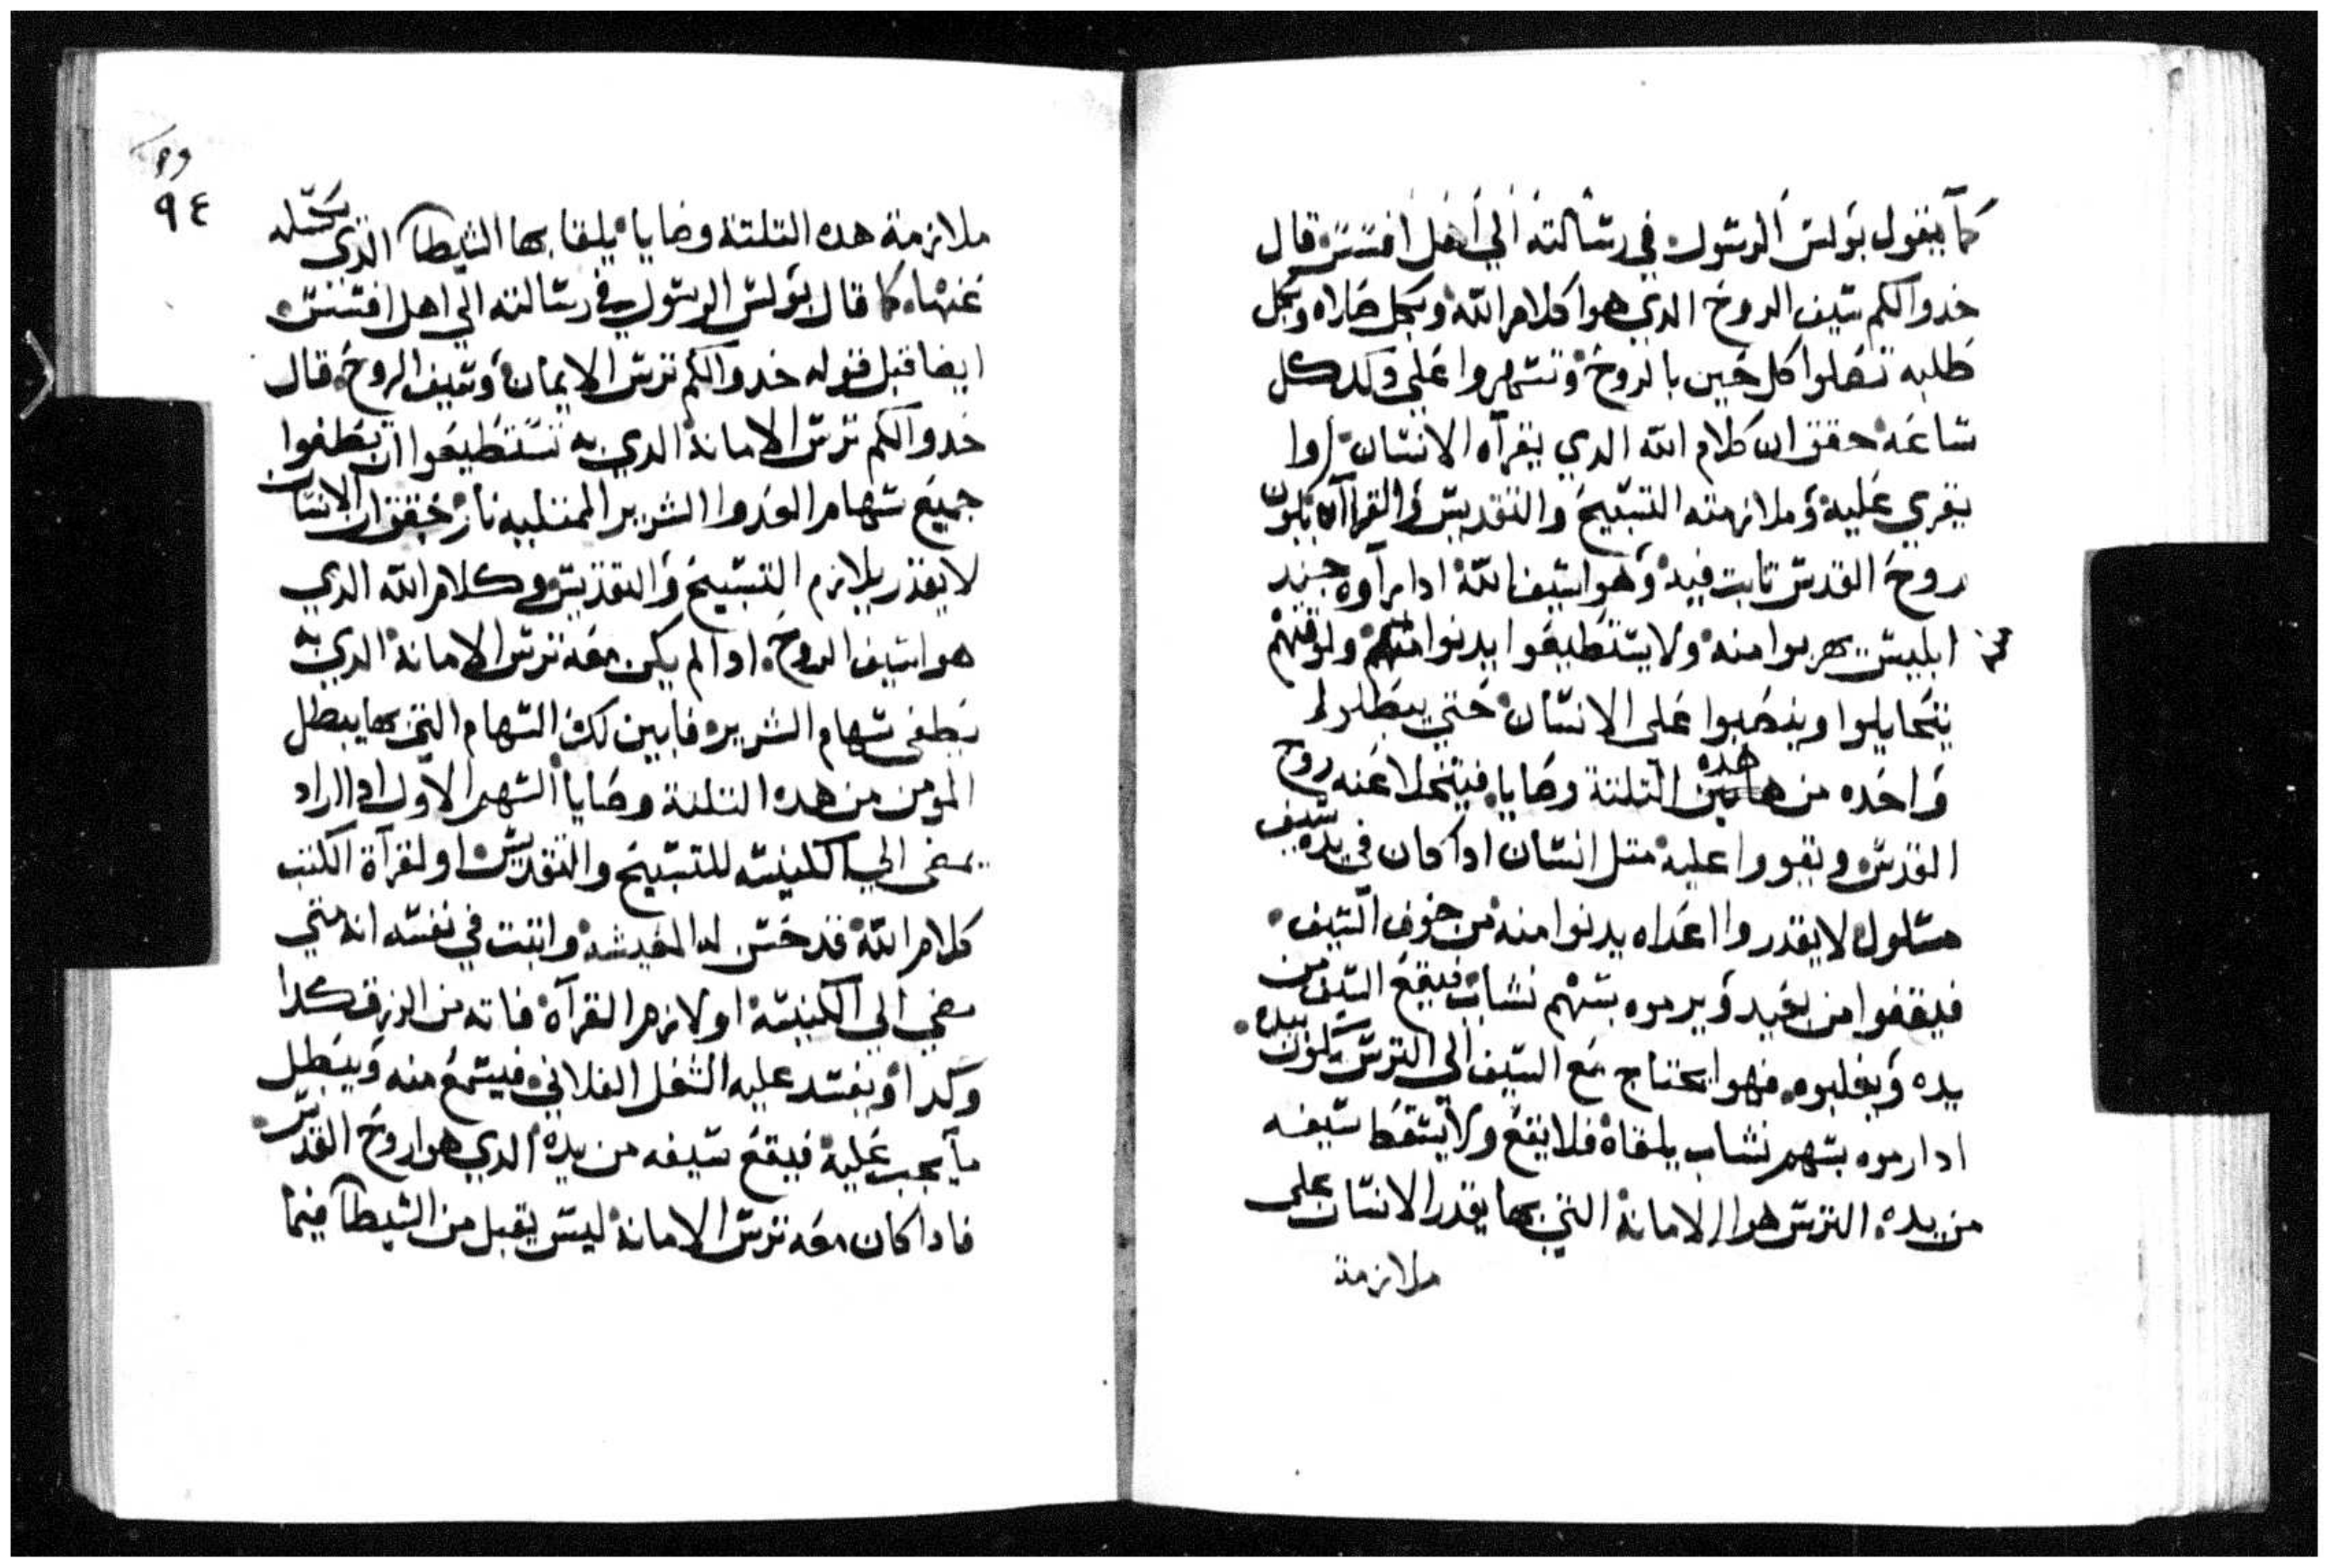 كما يقول بولس الرسول في رسالته الي اهل افسس قال
خدوا لكم سيف الروح الدي هوا كلام الله وبكل صلاه وبكل
طلبه تصلوا كل حين بالروح وتسهروا علي دلك كل
ساعه حقق ان كلام الله الدي يقرآه الانسان اوا
يقري عليه وملازمته التسبيح والتقديس والقراآه يكون
روح القدس تابت فيه وهوا سيف الله ادا رآوه جند
ابليس يهربوا منه ولا يستطيعوا يدنوا منه ولوقتهم
يتحايلوا وينصبوا على الانسان حتي يبطلو له
واحده من هده التلتة وصايا فيتخلا عنه روح
القدس ويقووا عليه متل انسان ادا كان في يده سيف
مسلول لا يقدروا اعداه يدنوا منه من خوف السيف
فيقفوا من بعيد ويرموه بسهم نشاب فيقع السيف من
يده ويغلبوه فهوا يحتاج مع السيف الي الترس يكون بيده
ادا رموه بسهم نشاب يلقاه فلا يقع ولا يسقط سيفه
من يده الترس هوا الامانة التي بها يقدر الانسان على
ملازمة
٩٤
ملازمة هده التلتة وصايا يلقا بها الشيطان الدي
عنها كما قال بولس الرسول في رسالته الي اهل افسس
ايضا قبل قوله خدوا لكم ترس الايمان وسيف الروح قال
خدوا لكم ترس الامانة الدي به تستطيعوا ان تطفوا
جميع سهام العدوا الشرير الممتليه نار حقق ان الانسان
لا يقدر يلازم التسبيح والتقديس وكلام الله الدي
هوا سيف الروح ادا لم يكن معه ترس الامانة الدي به
يطفي سهام الشرير فابين لك السهام التي بها يبطل
المومن من هده التلتة وصايا السهم الاول ادا اراد
يمضي الي الكنيسه للتسبيح والتقديس او لقرآة الكتب
كلام الله قد حسن له المعيشه واتبت في نفسه انه متي
مضي الي الكنيسة او لازم القرآة فاته من الرزق كدا
وكدا ويفسد عليه الشغل الفلاني فيسمع منه ويبطل
ما يجب عليه فيقع سيفه من يده الدي هوا روح القدس
فادا كان معه ترس الامانة ليس يقبل من الشيطان فيما